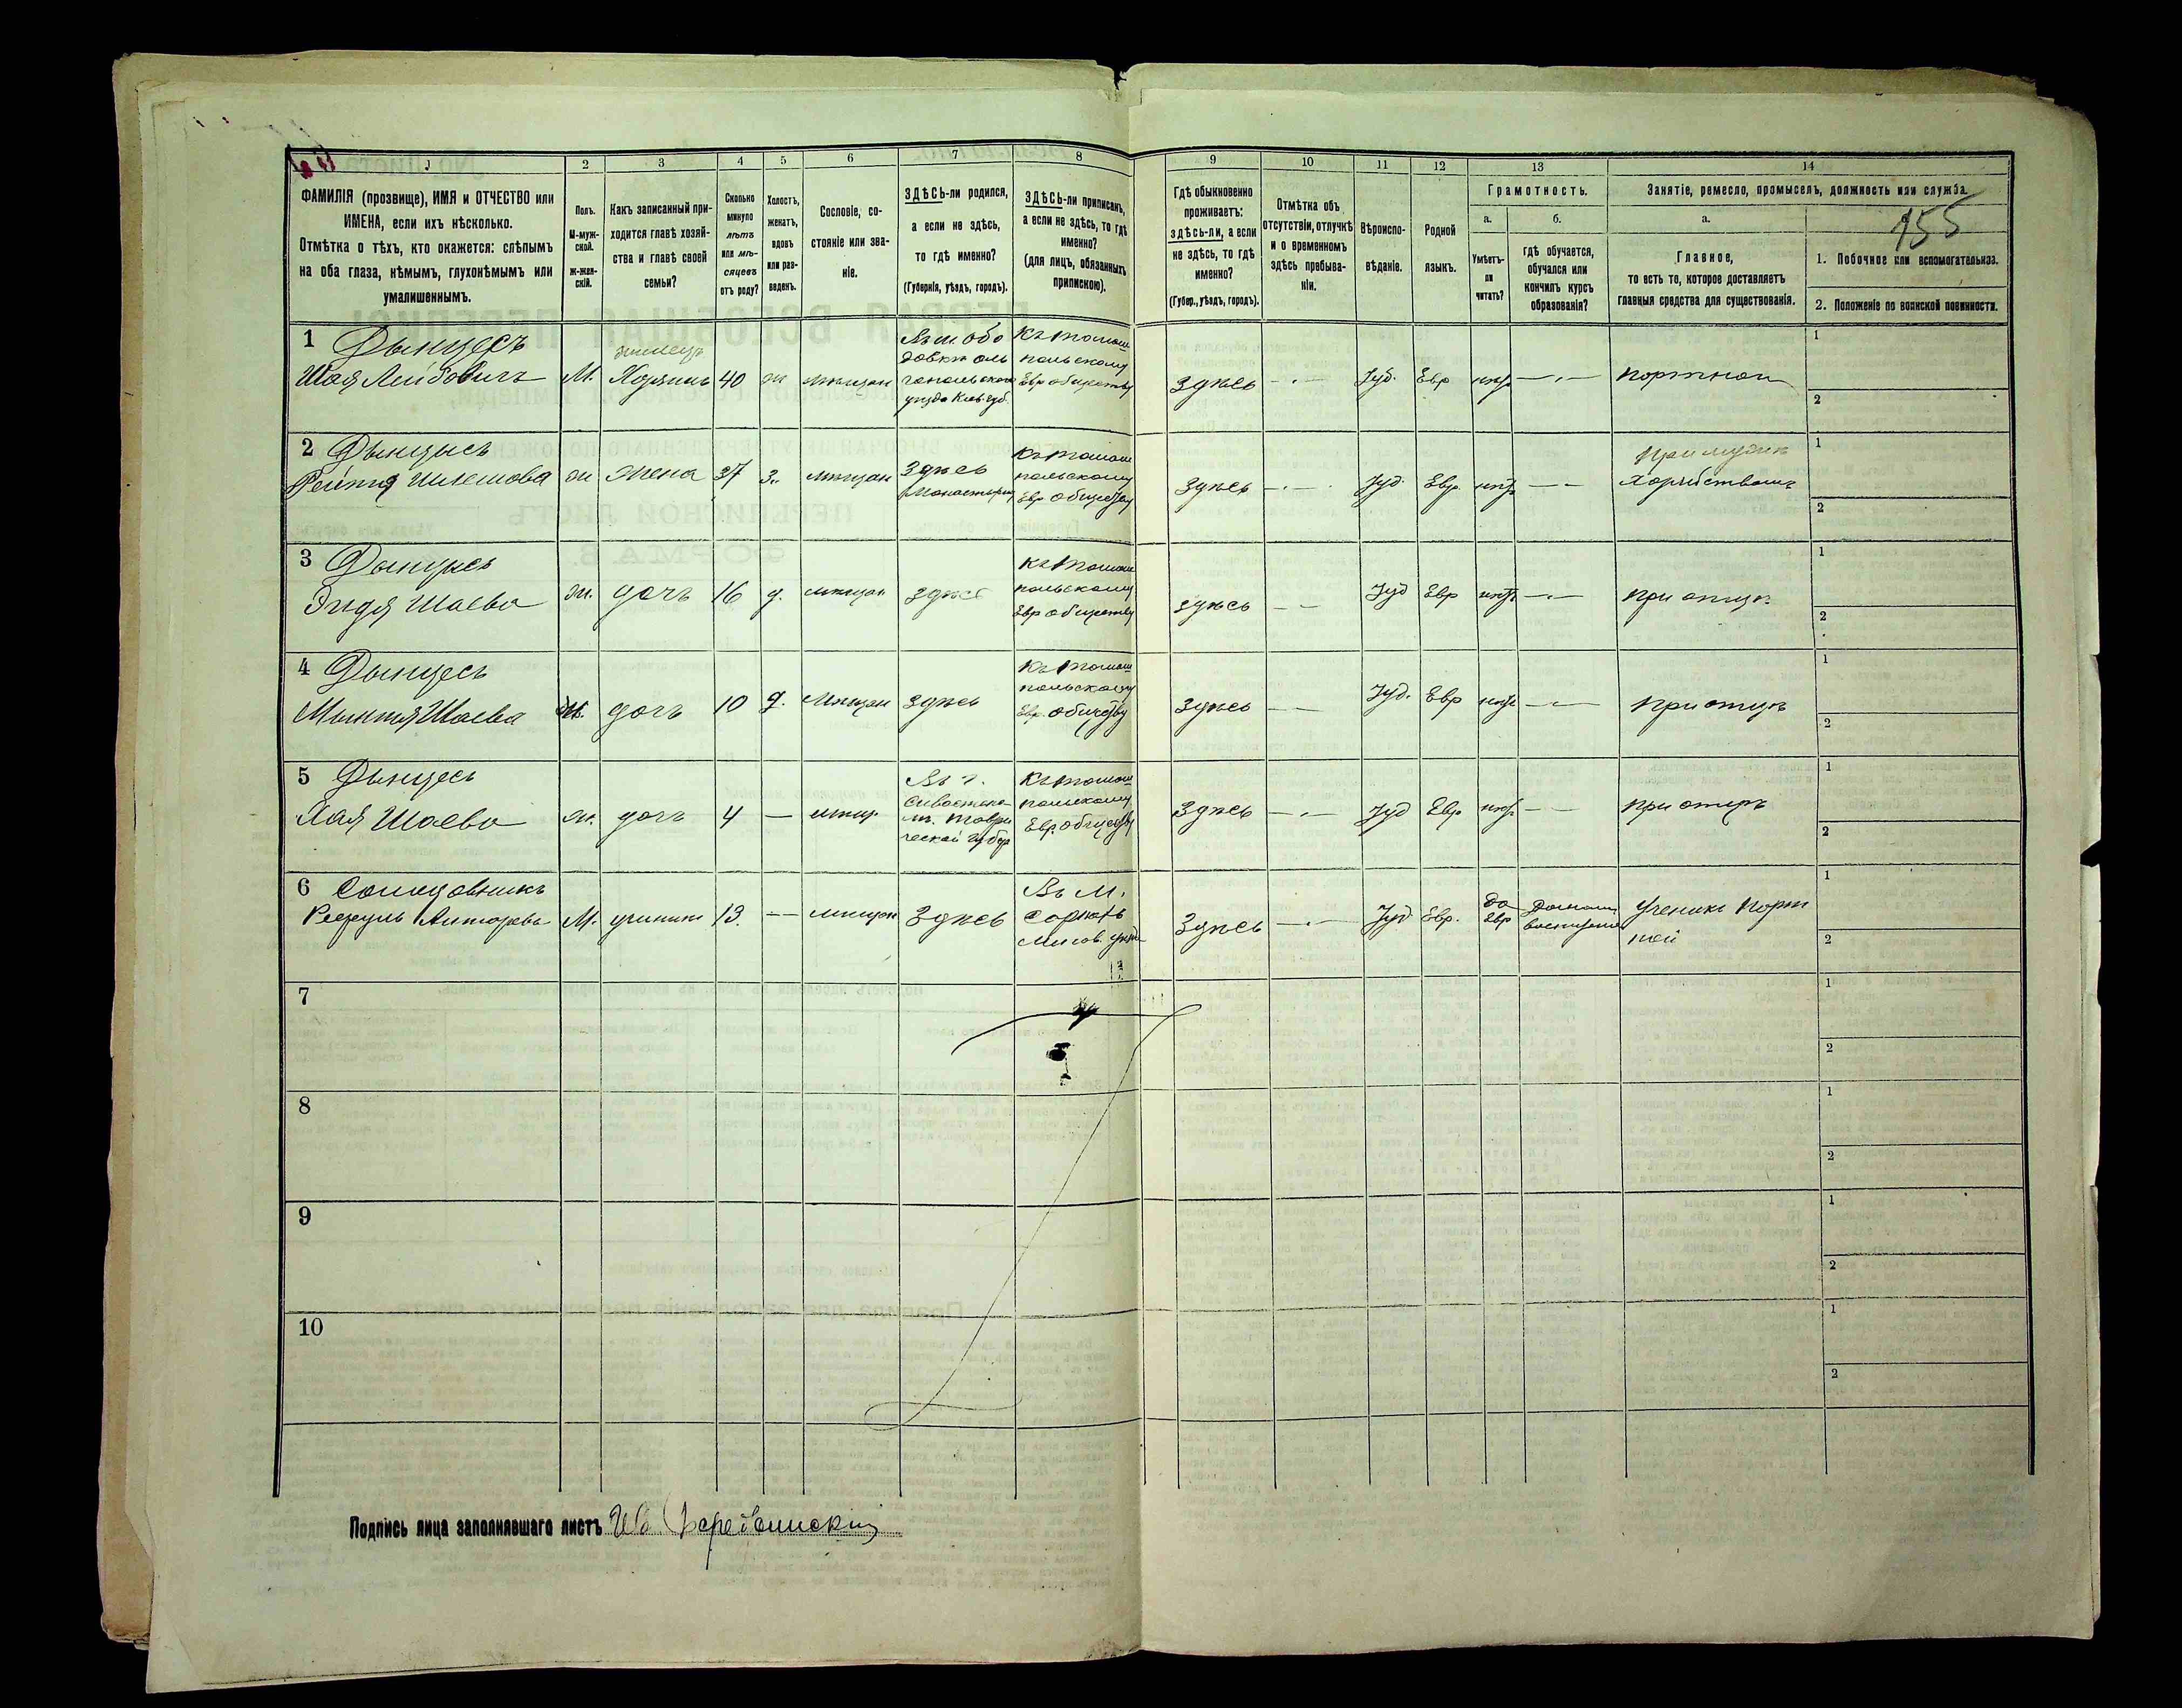 1
2
3
4
5
6
7
8
ФАМИЛІЯ (прозвище), ИМЯ и ОТЧЕСТВО или
ИМЕНА, если ихъ нѣсколько.
Отмѣтка о тѣхъ, кто окажется: слѣпымъ
на оба глаза, нѣмымъ, глухонѣмымъ или
умалишеннымъ.
Полъ.
М-муж-
ской.
ж-жен-
скій.
Какъ записанный при-
ходится главѣ хозяй-
ства и главѣ своей
семьи?
Сколько
минуло
лѣтъ
или мѣ-
сяцевъ
отъ роду?
Холостъ,
женатъ,
вдовъ
или раз-
веденъ.
Сословіе, со-
стояніе или зва-
ніе.
ЗДѢСЬ-ли родился,
а если не здѣсь,
то гдѣ именно?
(Губернія, уѣздъ, городъ).
ЗДѢСЬ-ли приписанъ,
а если не здѣсь, то гдѣ
именно?
(для лицъ, обязанныхъ
припискою).
9
10
11
12
13
14
Гдѣ обыкновенно
проживаетъ:
здѣсь-ли, а если
не здѣсь, то гдѣ
именно?
(Губер., уѣздъ, городъ).
Отмѣтка объ
отсутствіи, отлучкѣ
и о временномъ
здѣсь пребыва-
ніи.
Вѣроиспо-
вѣданіе.
Родной
языкъ.
Грамотность.
а.
б.
Умѣетъ-
ли
читать?
гдѣ обучается,
обучался или
кончилъ курсъ
образованія?
Занятіе, ремесло, промыселъ, должность или служба.
155
а.
Главное,
то есть то, которое доставляетъ
главныя средства для существованія.
1. Побочное или вспомогательное.
2. Положеніе по воинской повинности.
1 Дынцесъ
Шая Лейбовичъ
М.
Хозяинъ
40
ж
мѣщан
уѣзда Кіев. губ.
Къ томаш
польскому
Евр обществу
здѣсь
Іуд.
Евр
нѣт
портной
1
2
2 Дынцысь
жена
37
з.
мѣщан
здѣсь
Къ томаш
польскому
Евр обществу
здѣсь
Іуд.
Евр
нѣт
При мужѣ
1
2
3 Дынцысь
Эидя Шаева
ж.
дочь
16
д.
мѣщан
здѣсь
Къ томаш
польскому
Евр обществу
здѣсь
Іуд
Евр
нѣт
при отцѣ
1
2
4 Дынцесь
Шаева
ж.
дочь
10
д.
мѣщан
здѣсь
Къ томаш
польскому
Евр обществу
здѣсь
Іуд.
Евр
нѣт
при отцѣ
1
2
5 Дынцесь
Хая Шаева
ж.
дочь
4
мѣщ.
Въ г.
Севастопо
лѣ. Таври
ческой губер
Къ томаш
польскому
Евр. обществу
здѣсь
Іуд
Евр
нѣт
при отцѣ
1
2
6
М.
ученик
13.
мѣщан
здѣсь
Въ М.
здѣсь
Іуд
Евр.
Да
Евр
Ученикъ порт
ной
1
2
7
1
2
8
1
2
9
1
2
10
1
2
Подпись лица заполнявшаго листъ